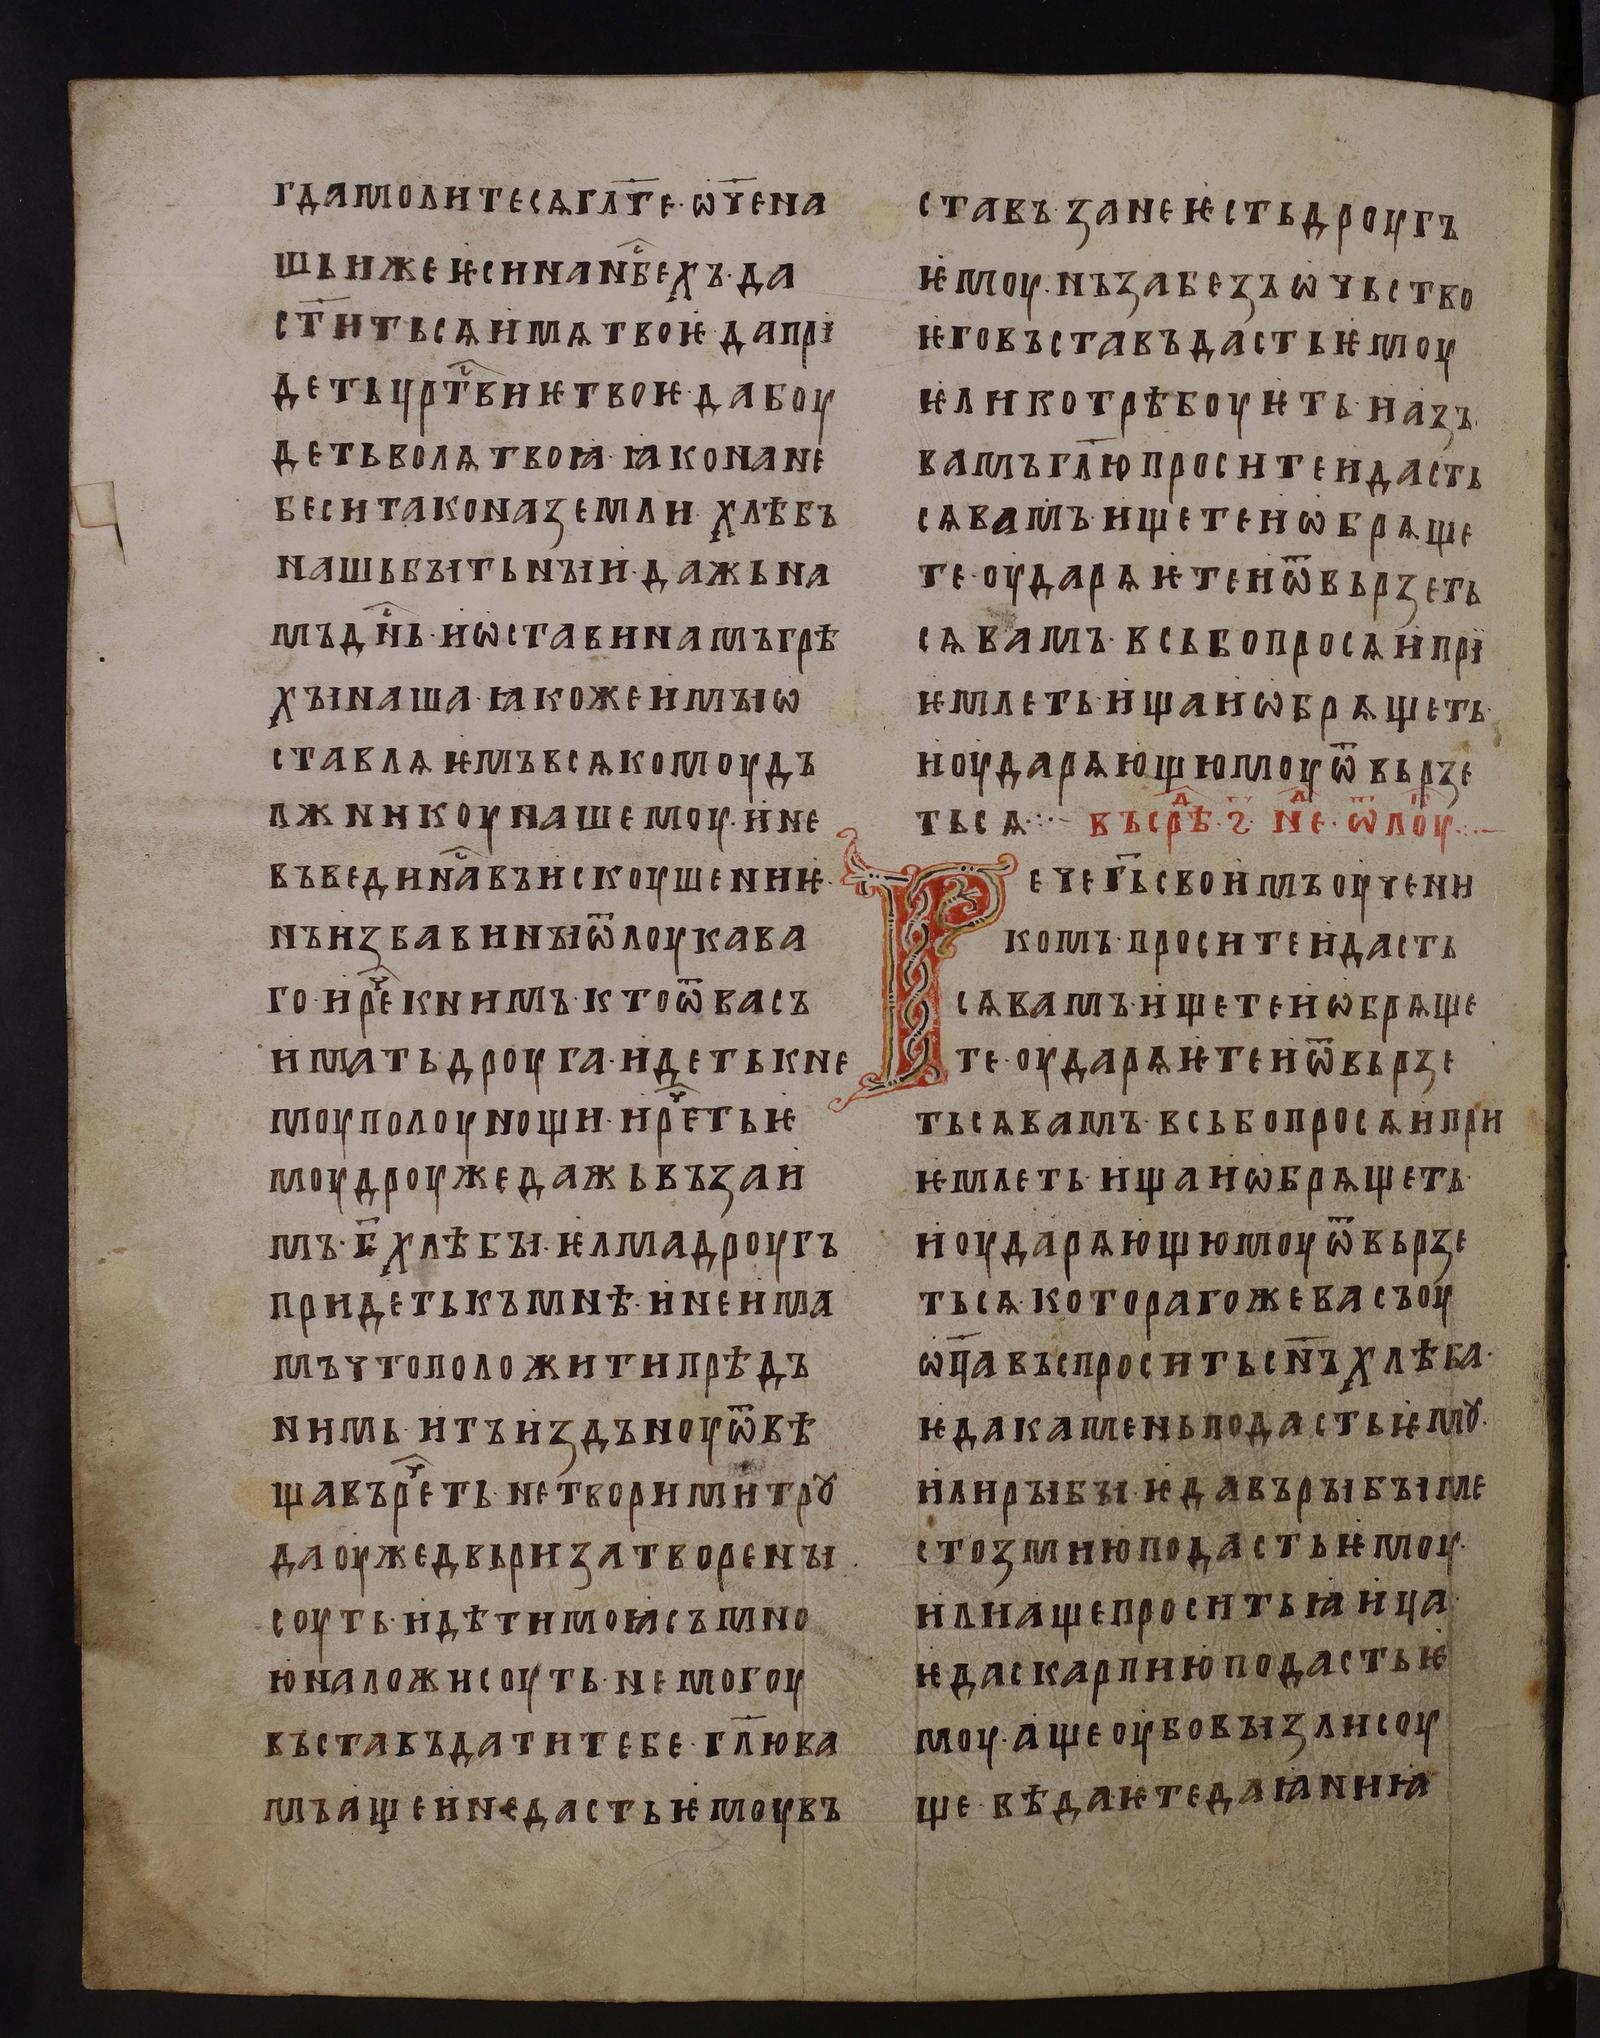 гдамолитесѧгл҃те·ѡч҃ена
шьижеѥсинанб҃ⷭ҇ехъ·да
ст҃итьсѧимѧтвоѥ·дапрі
детьцрт҃ⷭ҇виѥтвоѥ·дабоу
детьволѧтвоꙗ·ꙗконане
беситаконаꙁемли·хлѣбъ
нашьбꙑтьнꙑи·дажьна
мъднⷭ҇ь·иѡставинамъгрѣ
хꙑнаша·ꙗкожеимꙑѡ
ставлѧѥмъвсѧкомоудъ
лжникоунашемоу·ине
въвединⷭ҇авъискоушениѥ·
нъиꙁбавинꙑѿлоукава
го·ирⷱ҇екнимъ·ктоѿвасъ
иматьдроуга·идетькне
моуполоунощи·ирⷱ҇етьѥ
моудроужедажьвъꙁаи
мъ·г҃хлѣбꙑ·ѥлмадроугъ
придетькъмнѣ·инеима
мъчтоположитипрѣдъ
нимь·итъиꙁдъноуѿвѣ
щавърⷱ҇еть·нетворимитрꙋ
даоужедвьриꙁатворенꙑ
соуть·идѣтимоꙗсъмно
юналожисоуть·немогоу
въставъдатитебе·гл҃юва
мъащеинедастьѥмоувъ
ставъꙁанеѥстьдроугъ
ѥмоу·нъꙁабеꙁъѡчьство
ѥговъставъдастьѥмоу
ѥликотрѣбоуѥть·иаꙁъ
вамъгл҃юпроситеидасть
сѧвамъ·ищетеиѡбрѧще
те·оударѧѥтеиѿвьрꙁеть
сѧвамъ·всьбопросѧипрі
ѥмлеть·ищаиѡбрѧщеть·
иоударѧющюмоуѿвьрꙁе
тьсѧ·:·въсрⷣѣ·г҃·нⷣе·ѿлоуⷦ·:·
Речег҃ьсвоимъоучени
комъ·проситеидасть
сѧвамъ·ищетеиѡбрѧще
те·оударѧѥтеиѿвьрꙁе
тьсѧвамъ·всьбопросѧипри
ѥмлеть·ищаиѡбрѧщеть·
иоударѧющюмоуѿвьрꙁе
тьсѧ·которагожевасъоу
ѡц҃авъспроситьсн҃ъхлѣба·
ѥдакаменьподастьѥмꙋ·
илирꙑбꙑ·ѥдаврꙑбꙑме
стоꙁмиюподастьѥмоу·
илиащепроситьꙗица·
ѥдаскарпиюподастьѥ
моу·ащеоубовꙑꙁлисоу
ще·вѣдаѥтедаꙗниꙗ